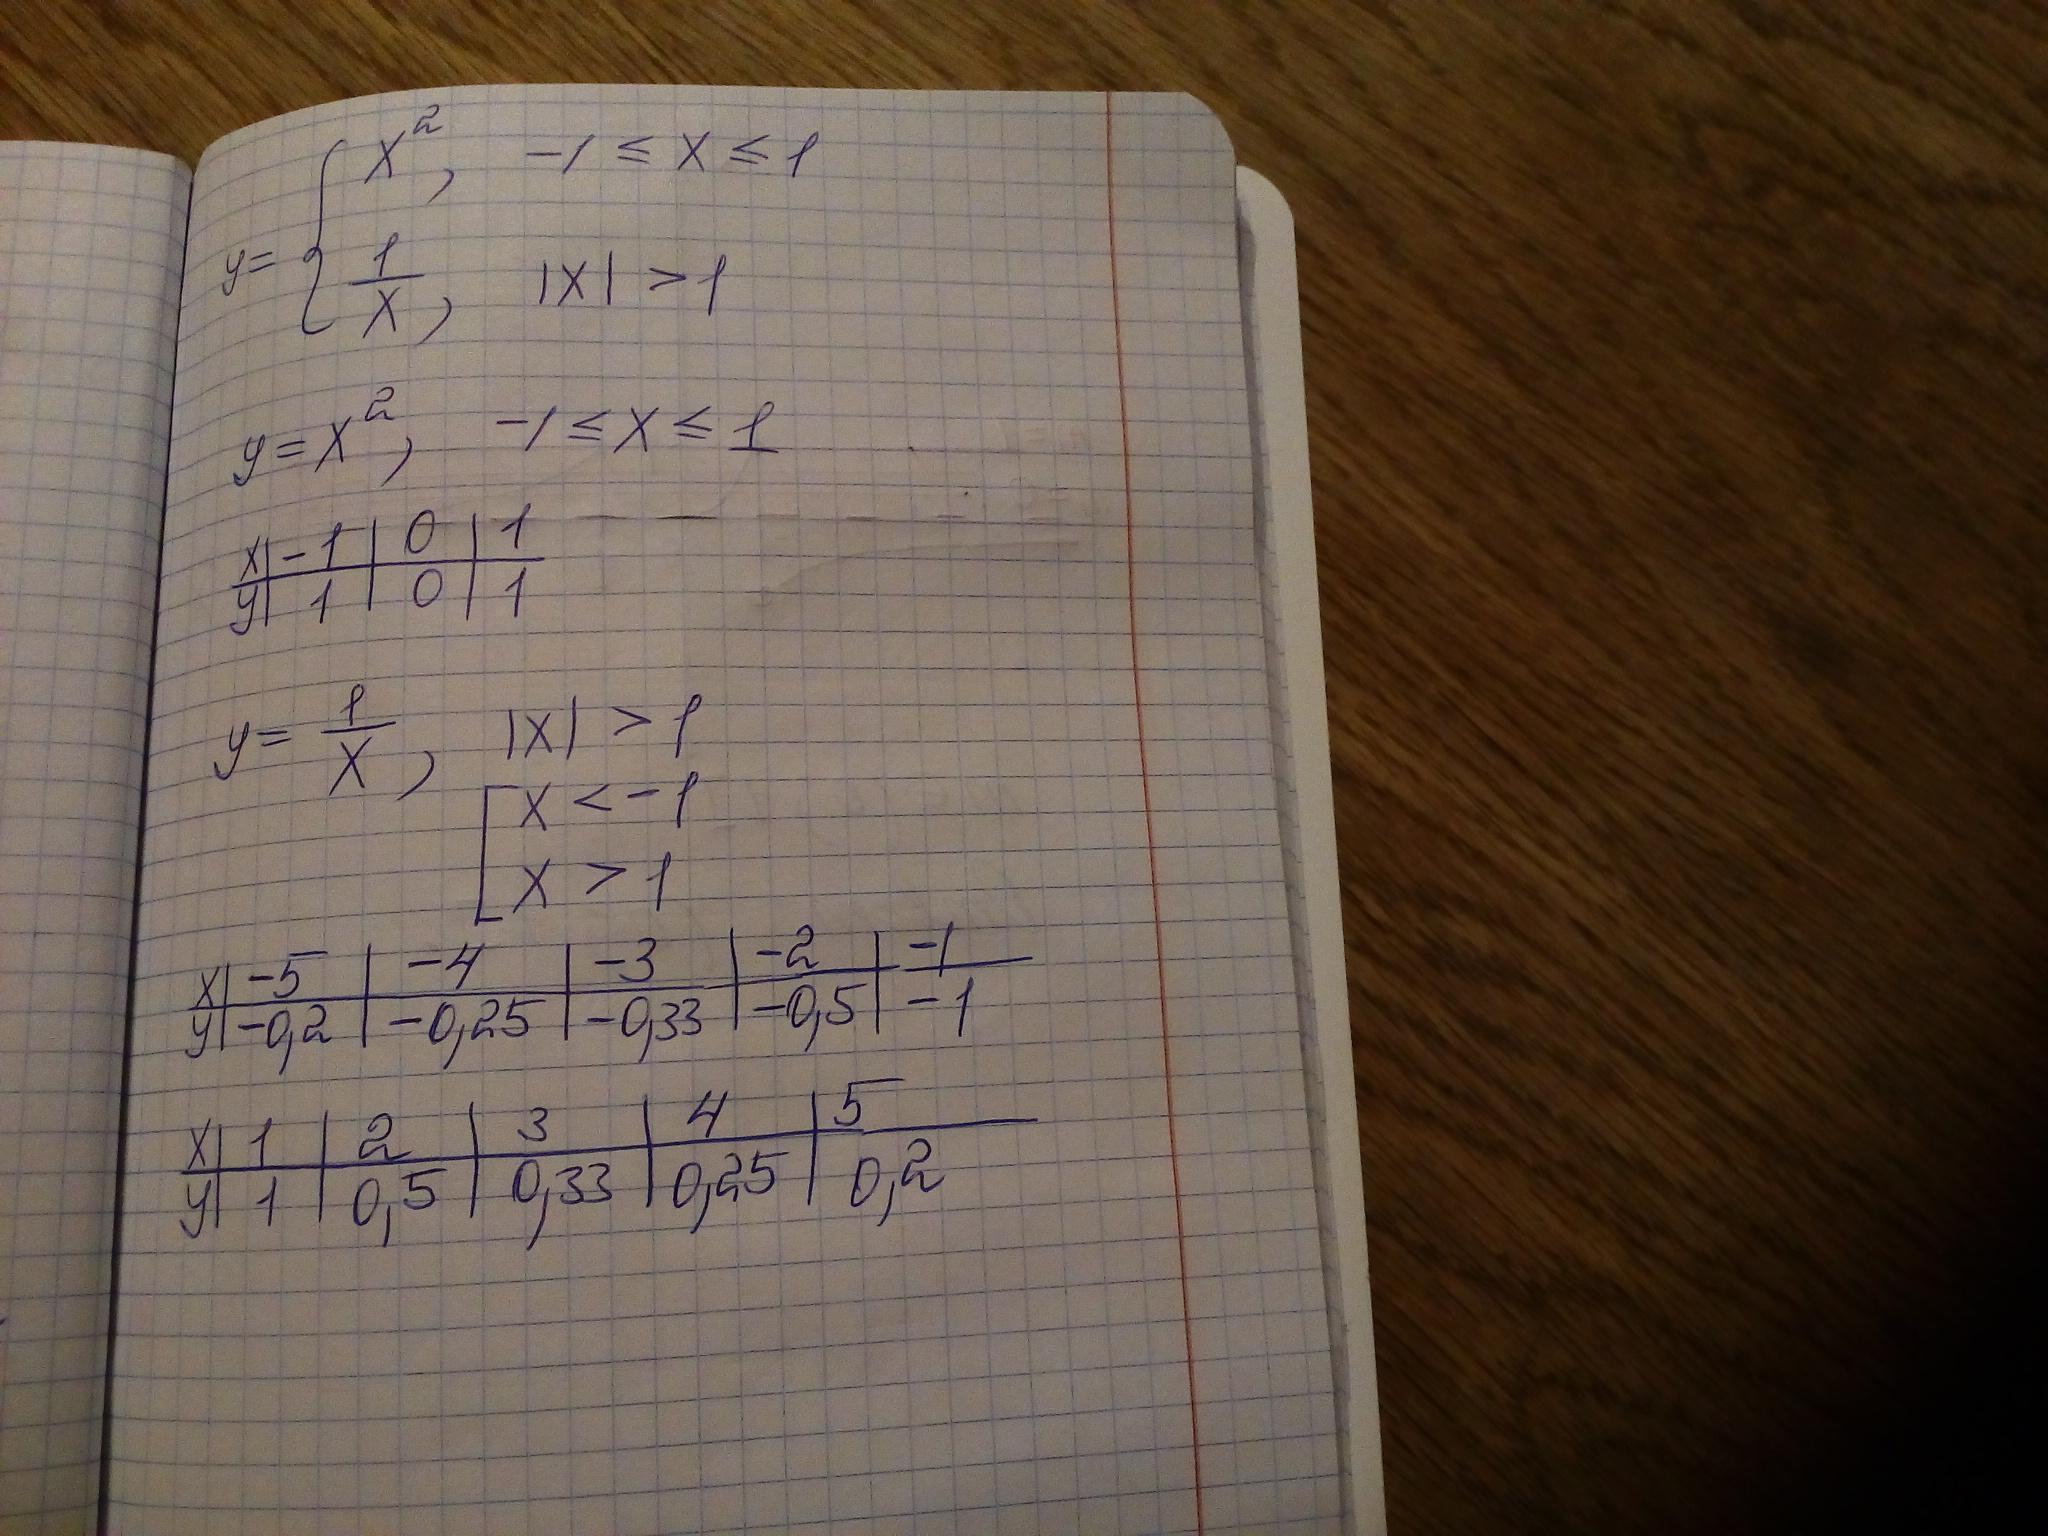 y = { x², -1 ≤ x ≤ 1
1/x, |x| > 1
y = x², -1 ≤ x ≤ 1
x | -1 | 0 | 1
y | 1 | 0 | 1
y = 1/x, |x| > 1
[ x < -1
x > 1
x | -5 | -4 | -3 | -2 | -1
y | -0,2 | -0,25 | -0,33 | -0,5 | -1
x | 1 | 2 | 3 | 4 | 5
y | 1 | 0,5 | 0,33 | 0,25 | 0,2